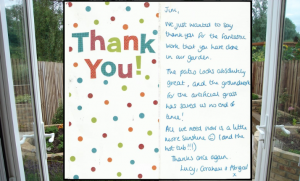 Thank
You!
Jim,
We just wanted to say
thank you for the fantastic
work that you have done
in our garden.
The patio looks absolutely
great, and the groundwork
for the artificial grass
has saved us no end of
time!
All we need now is a little
more sunshine (and the
hot tub!!!)
Thanks once again
Lucy, Graham & Abigail
x